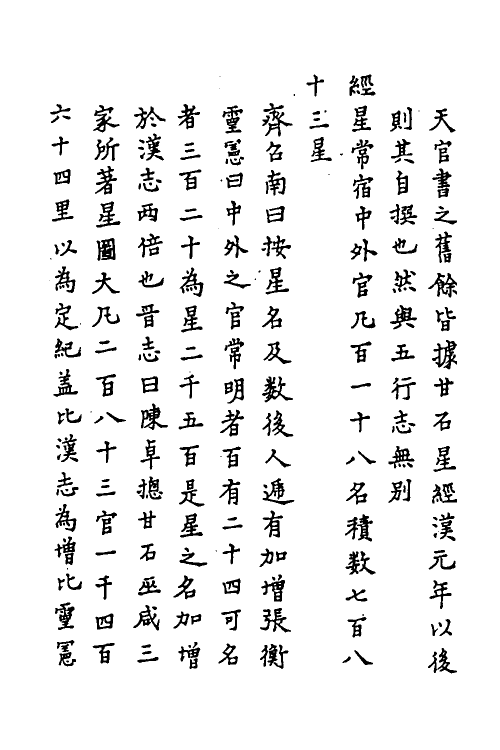 天官書之舊餘皆據甘石星經漢元年以後
則其自撰也然與五行志無別
經星常宿中外官凡百一十八名積数七百八
十三星
齊召南曰按星名及数後人遞有加增張衡
靈憲曰中外之官常明者百有二十四可名
者三百二十為星二千五百是星之名加增
於漢志兩倍也晉志曰陳卓摠甘石巫咸三
家所著星圖大凡二百八十三官一千四百
六十四里以為定紀盖比漢志為增比靈憲